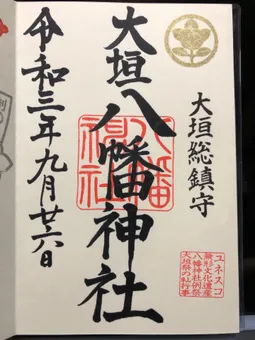 大垣総鎮守
ユネスコ
無形文化遺産
八幡神社例祭
大垣祭の軕行事
大垣八幡神社
令和三年九月廿六日